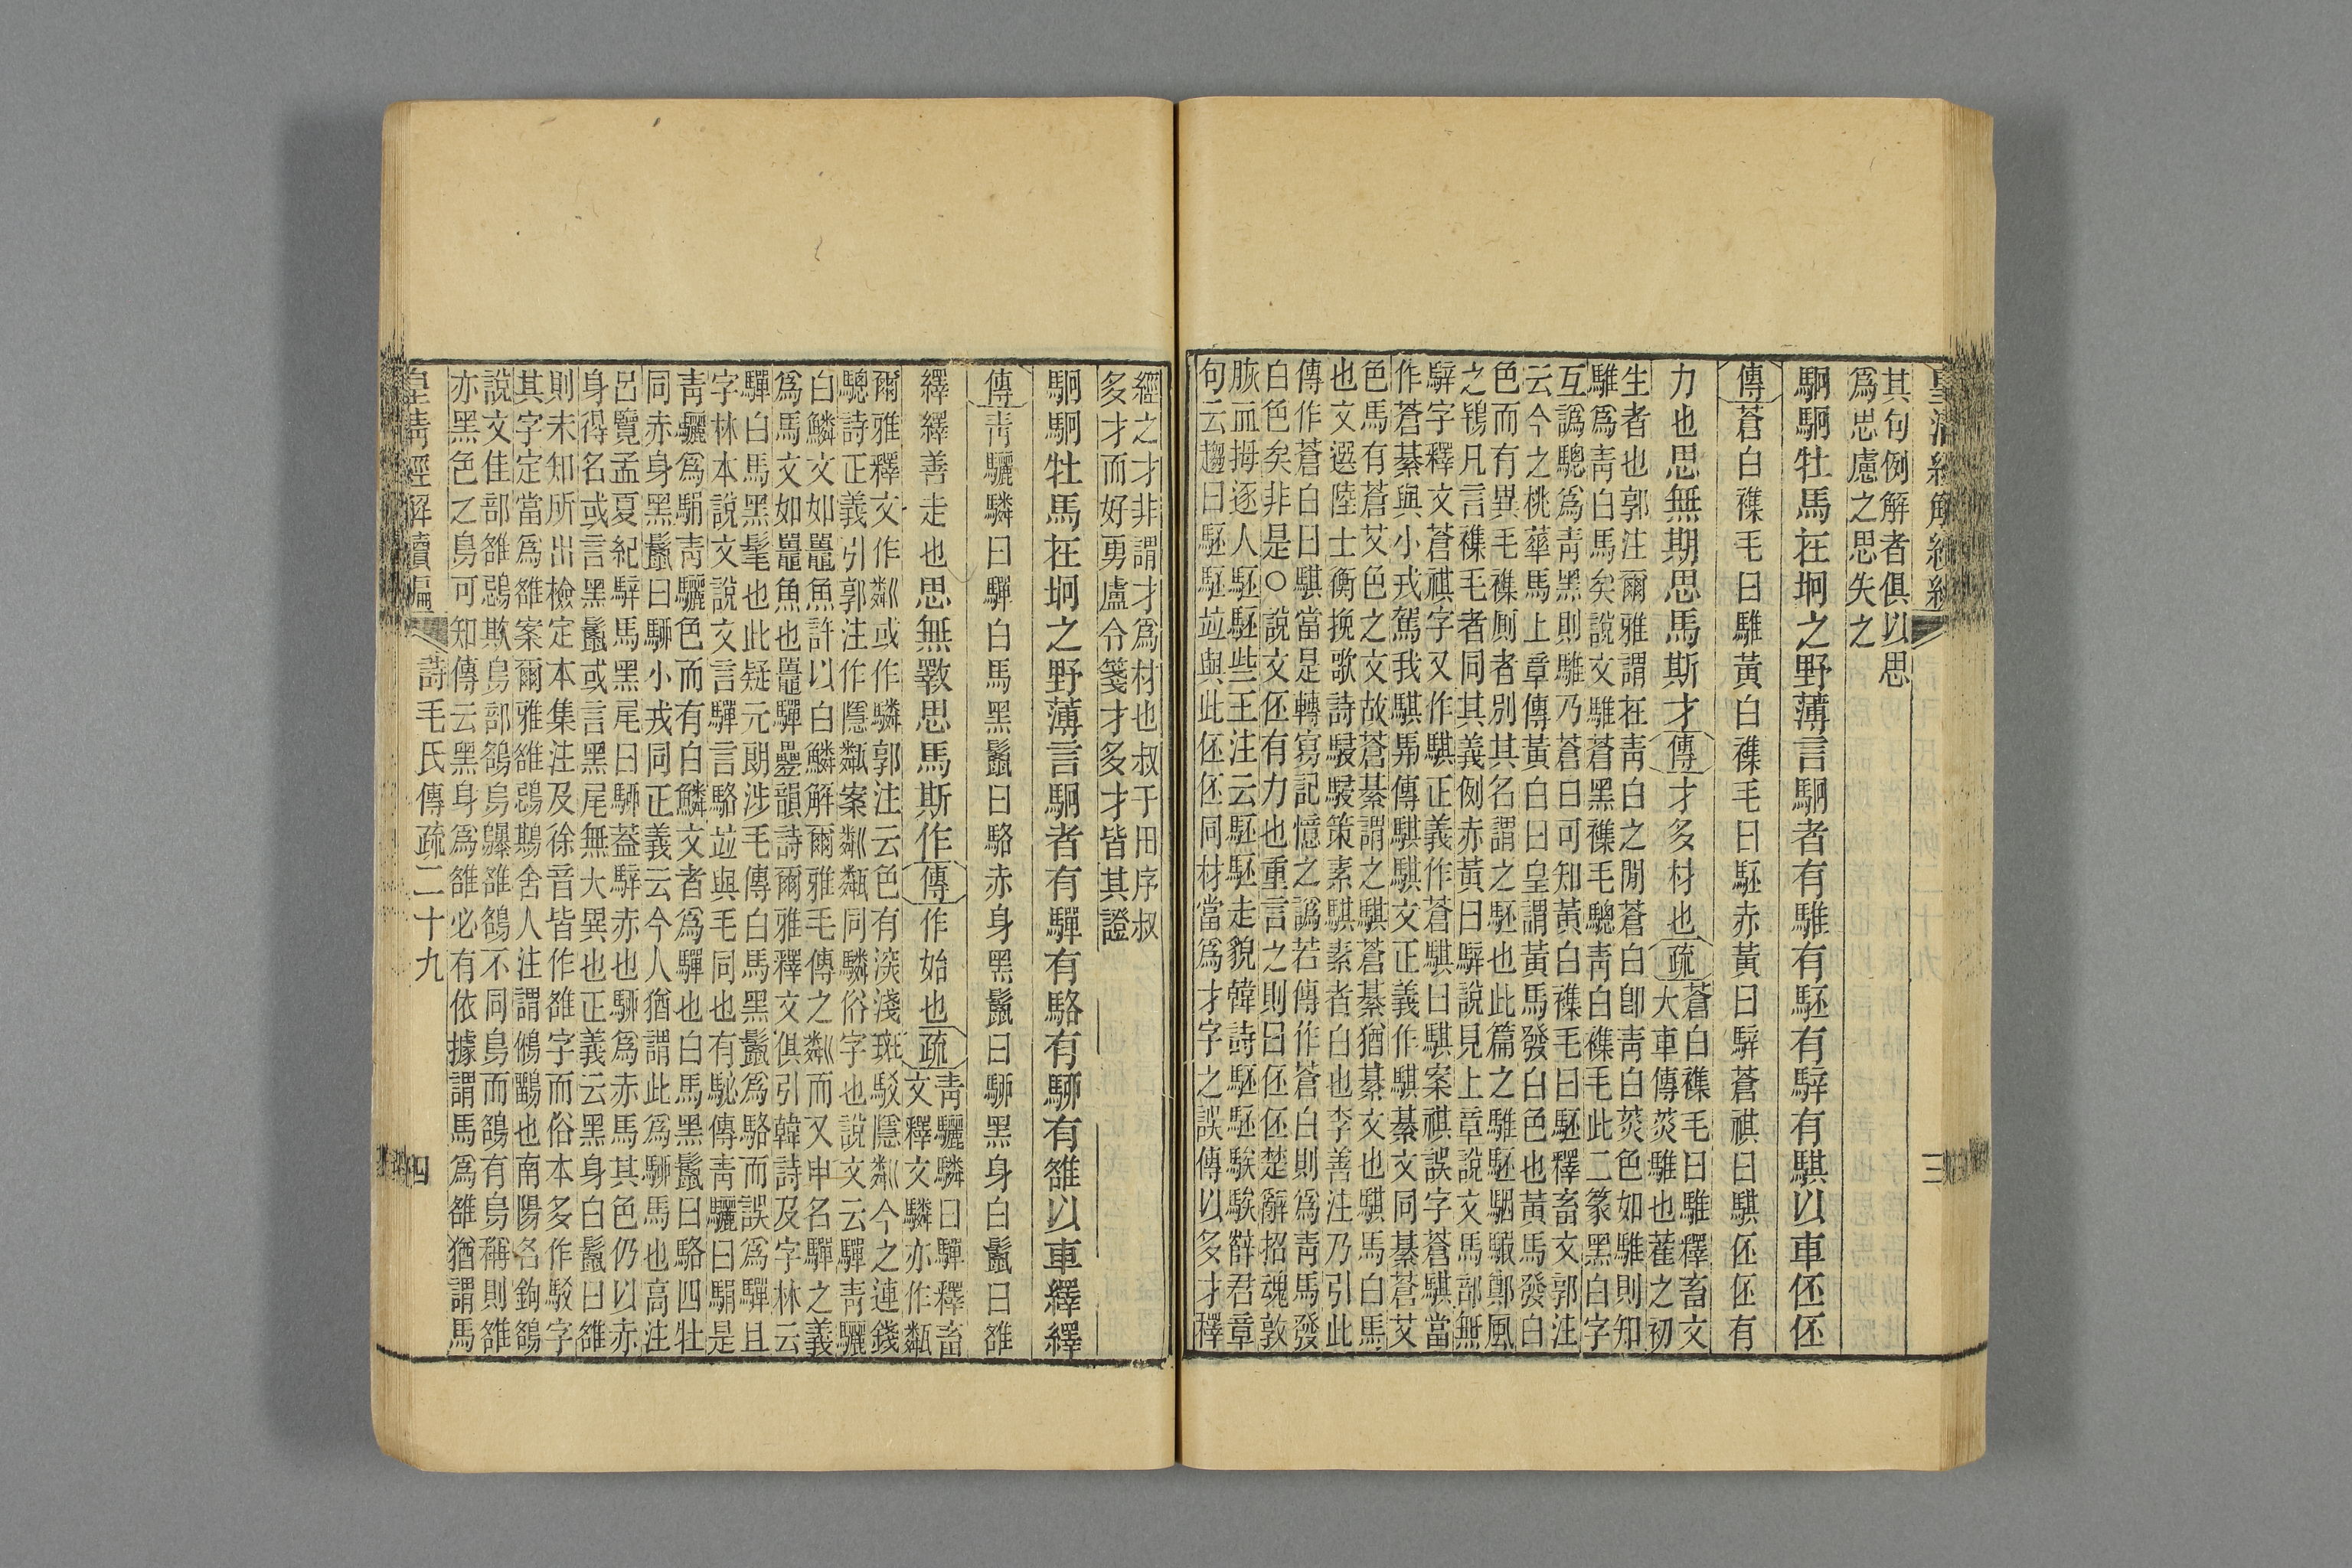 皇清經解續編
三
其句例解者俱以思
爲思慮之思失之
駉駉牡馬在坰之野薄言駉者有騅有駓有騂有騏以車伾伾
傳蒼白襍毛曰騅黃白襍毛曰駓赤黃曰騂蒼祺曰騏伾伾有
力也思無期思馬斯才傳才多材也疏
蒼白襍毛曰騅釋畜文
大車傳菼騅也萑之初
生者也郭注爾雅謂在靑白之閒蒼白卽靑白菼色如騅則知
騅爲靑白馬矣說文騅蒼黑襍毛驄靑白襍毛此二篆黑白字
互譌驄爲靑黑則騅乃蒼白可知黃白襍毛曰駓釋畜文郭注
云今之桃華馬上章傳黃白曰皇謂黃馬發白色也黃馬發白
色而有異毛襍厠者別其名謂之駓也此篇之騅駓駰騢鄭風
之鴇凡言襍毛者同其義例赤黃曰騂說見上章說文馬部無
騂字釋文蒼祺字又作騏正義作蒼騏曰騏案祺誤字蒼騏當
作蒼綦與小戎駕我騏馵傳騏騏文正義作騏綦文同綦蒼艾
色馬有蒼艾色之文故蒼綦謂之騏蒼綦猶綦文也騏馬白馬
也文選陸士衡挽歌詩駸駸策素騏素者白也李善注乃引此
傳作蒼白曰騏當是轉寫記憶之譌若傳作蒼白則爲靑馬發
白色矣非是○說文伾有力也重言之則曰伾伾楚辭招魂敦
脄血拇逐人駓駓些王注云駓駓走貌韓詩駓駓騃騃薛君章
句云趨曰駓駓竝與此伾伾同材當爲才字之誤傳以多才釋
經之才非謂才爲材也叔于田序叔
多才而好勇盧令箋才多才皆其證
駉駉牡馬在坰之野薄言駉者有驒有駱有駵有雒以車繹繹
傳靑驪驎曰驒白馬黑鬛曰駱赤身黑鬛曰駵黑身白鬛曰雒
繹繹善走也思無斁思馬斯作傳作始也疏
靑驪驎曰驒釋畜
文釋文驎亦作甐
爾雅釋文作粼或作驎郭注云色有深淺斑駁隱粼今之連錢
驄詩正義引郭注作隱甐案粼甐同驎俗字也說文云驒靑驪
白鱗文如鼉魚許以白鱗解爾雅毛傳之粼而又申名驒之義
爲馬文如鼉魚也鼉驒曡韻詩爾雅釋文俱引韓詩及字林云
驒白馬黑髦也此疑元朗涉毛傳白馬黑鬛爲駱而誤爲驒且
字林本說文說文言驒言駱竝與毛同也有駜傳靑驪曰駽是
靑驪爲駽靑驪色而有白鱗文者爲驒也白馬黑鬛曰駱四牡
同赤身黑鬛曰駵小戎同正義云今人猶謂此爲駵馬也高注
呂覽孟夏紀騂馬黑尾曰駵葢騂赤也駵爲赤馬其色仍以赤
身得名或言黑鬛或言黑尾無大異也正義云黑身白鬛曰雒
則未知所出檢定本集注及徐音皆作雒字而俗本多作駁字
其字定當爲雒案爾雅雒鵋䳢舍人注謂鵂鶹也南陽名鉤鵅
說文隹部雒鵋欺鳥部鵅烏鸔雒鵅不同鳥而鵅有烏稱則雒
亦黑色之鳥可知傳云黑身爲雒必有依據謂馬爲雒猶謂馬
皇清經解續編
詩毛氏傳疏二十九
四